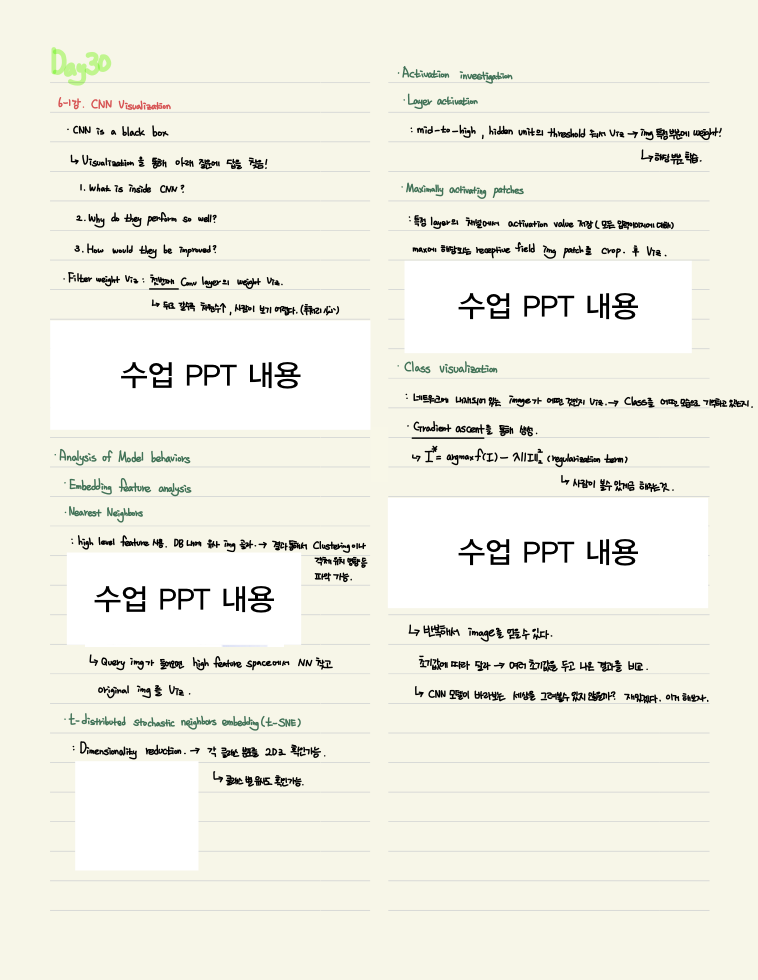 Day30
6-1강. CNN Visualization
· CNN is a black box
↳ Visualization을 통해 아래 질문에 답을 찾음!
1. What is inside CNN?
2. Why do they perform so well?
3. How would they be improved?
· Filter weight Viz : 첫번째 Conv layer의 weight Viz.
↳ 뒤로 갈수록 채널수↑, 사람이 보기 어렵다. (후처리 必)
수업 PPT 내용
· Analysis of Model behaviors
· Embedding feature analysis
· Nearest Neighbors
: high level feature 사용. DB 내에 유사 img 결과. → 결과 통해서 Clustering 이나
객체 위치 영향을
파악 가능.
수업 PPT 내용
↳ Query img가 들어오면 high feature space에서 NN 찾고
original img를 Viz.
· t-distributed stochastic neighbors embedding (t-SNE)
: Dimensionality reduction. → 각 클래스 분포를 2D로 확인가능.
↳ 클래스 별 유사도 확인가능.
· Activation investigation
· Layer activation
: mid-to-high, hidden unit의 threshold 둬서 Viz → img 특정부분에 weight!
↳ 해당 부분 학습.
· Maximally activating patches
: 특정 layer의 채널에서 activation value 저장 (모든 입력이미지에 대해)
max에 해당되는 receptive field img patch를 crop. 후 Viz.
수업 PPT 내용
· Class visualization
: 네트워크에 내재되어 있는 image가 어떤 것인지 Viz. → Class를 어떤 모습으로 기억하고 있는지.
· Gradient ascent를 통해 생성.
↳ I* = argmax f(I) - λ||I||₂² (regularization term)
↳ 사람이 볼수 있게끔 해주는것.
수업 PPT 내용
↳ 반복해서 image를 만들수 있다.
초기값에 따라 달라 → 여러 초기값을 두고 나온 결과를 비교.
↳ CNN 모델이 바라보는 세상을 그려볼수 있지 않을까? 재밌겠다. 이거 해보자.